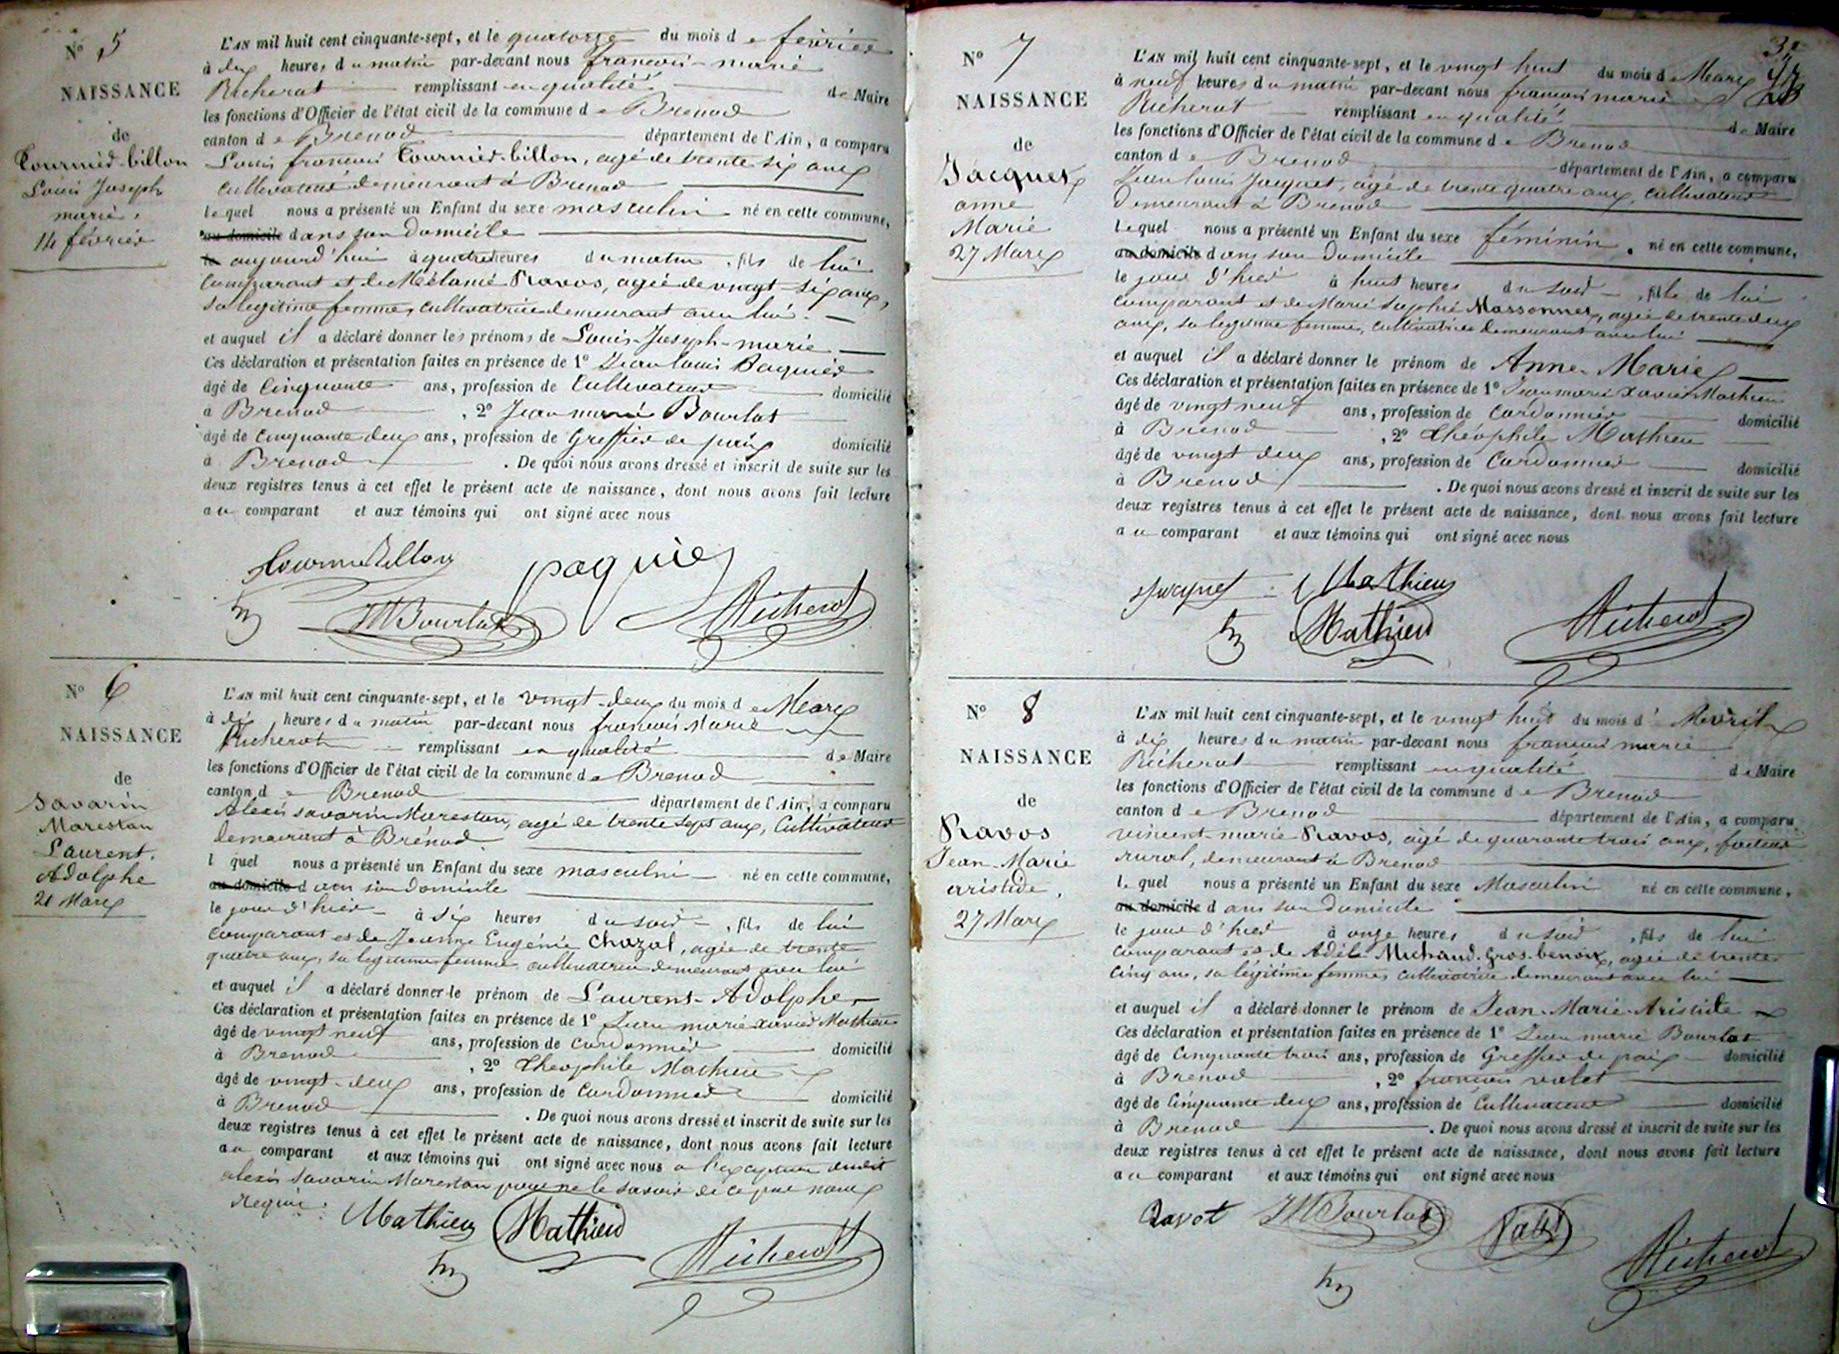 N° 5
NAISSANCE
de
Tournier-billon
Louis Joseph
marie.
14 février
L'AN mil huit cent cinquante-sept, et le quatorze du mois de février
à dix heures du matin par-devant nous françois-marie
Richerot remplissant en qualité de Maire
les fonctions d'Officier de l'état civil de la commune de Brenod
canton de Brenod département de l'Ain, a comparu
Louis françois Tournier-billon, agé de trente six ans
cultivateur demeurant à Brenod
lequel nous a présenté un Enfant du sexe masculin né en cette commune,
au domicile dans son domicile
le aujourd'hui à quatre heures du matin, fils de lui
comparant et de Mélanie Ravos, agée de vingt-six ans,
sa légitime femme, cultivatrice demeurant avec lui.
et auquel il a déclaré donner les prénoms de Louis-Joseph-marie
Ces déclaration et présentation faites en présence de 1° Jean louis Paquier
âgé de cinquante ans, profession de Cultivateur domicilié
à Brenod, 2° Jean marie Bourlot
âgé de cinquante deux ans, profession de Greffier de paix domicilié
à Brenod. De quoi nous avons dressé et inscrit de suite sur les
deux registres tenus à cet effet le présent acte de naissance, dont nous avons fait lecture
au comparant et aux témoins qui ont signé avec nous
Tournierbillon paquier
JMBourlot Richerot
N° 6
NAISSANCE
de
Savarin
Marestan
Laurent.
Adolphe
21 Mars
L'AN mil huit cent cinquante-sept, et le vingt-deux du mois de Mars
à dix heures du matin par-devant nous françois Marie
Richerot remplissant en qualité de Maire
les fonctions d'Officier de l'état civil de la commune de Brenod
canton de Brenod département de l'Ain, a comparu
Alexis savarin Marestan, agé de trente sept ans, Cultivateur
demeurant à Brénod.
l quel nous a présenté un Enfant du sexe masculin né en cette commune,
au domicile dans son domicile
le jour d'hier à six heures du soir, fils de lui
comparant et de Jeanne Eugénie Chazal, agée de trente
quatre ans, sa légitime femme cultivatrice demeurant avec lui
et auquel il a déclaré donner le prénom de Laurent-Adolphe
Ces déclaration et présentation faites en présence de 1° Jean marie xavier Mathieu
âgé de vingt neuf ans, profession de cordonnier domicilié
à Brenod, 2° Théophile Mathieu
âgé de vingt-deux ans, profession de Cordonnier domicilié
à Brenod. De quoi nous avons dressé et inscrit de suite sur les
deux registres tenus à cet effet le présent acte de naissance, dont nous avons fait lecture
au comparant et aux témoins qui ont signé avec nous a l'exception dudit
alexis Savarin Marestan pour ne le savoir de ce par nous
requis.
Mathieu Mathieu
Richerot
N° 7
NAISSANCE
de
Jacquet
anne
Marie
27 Mars
L'AN mil huit cent cinquante-sept, et le vingt huit du mois de Mars
à neuf heures du matin par-devant nous françois marie
Richerot remplissant en qualité de Maire
les fonctions d'Officier de l'état civil de la commune de Brenod
canton de Brenod département de l'Ain, a comparu
Jean louis Jacquet, agé de trente quatre ans, cultivateur
demeurant à Brenod
lequel nous a présenté un Enfant du sexe féminin. né en cette commune,
au domicile dans son Domicile
le jour d'hier à huit heures du soir, fille de lui
comparant et de Marie Sophie Massonnet, agée de trente deux
ans, sa légitime femme, cultivatrice demeurant avec lui
et auquel il a déclaré donner le prénom de Anne-Marie
Ces déclaration et présentation faites en présence de 1° Jean marie Xavier Mathieu
âgé de vingt neuf ans, profession de Cordonnier domicilié
à Brenod, 2° Théophile Mathieu
âgé de vingt deux ans, profession de Cordonnier domicilié
à Brenod. De quoi nous avons dressé et inscrit de suite sur les
deux registres tenus à cet effet le présent acte de naissance, dont nous avons fait lecture
au comparant et aux témoins qui ont signé avec nous
Jacquet Mathieu
Mathieu Richerot
N° 8
NAISSANCE
de
Ravos
Jean-Marie
aristide.
27 Mars
L'AN mil huit cent cinquante-sept, et le vingt huit du mois d' Avril
à dix heures du matin par-devant nous françois marie
Richerot remplissant en qualité de Maire
les fonctions d'Officier de l'état civil de la commune de Brenod
canton de Brenod département de l'Ain, a comparu
vincent-marie Ravos, agé de quarante trois ans, facteur
rural, demeurant à Brenod
lequel nous a présenté un Enfant du sexe Masculin né en cette commune,
au domicile dans son Domicile
le jour d'hier à onze heures du soir, fils de lui
comparant et de Adèle Michaud-Gros-benoix, agée de trente
cinq ans, sa légitime femme, cultivatrice demeurant avec lui
et auquel il a déclaré donner le prénom de Jean-Marie-Aristide
Ces déclaration et présentation faites en présence de 1° Jean marie Bourlot
âgé de Cinquante trois ans, profession de Greffier de paix domicilié
à Brenod, 2° françois valet
âgé de Cinquante deux ans, profession de Cultivateur domicilié
à Brenod. De quoi nous avons dressé et inscrit de suite sur les
deux registres tenus à cet effet le présent acte de naissance, dont nous avons fait lecture
au comparant et aux témoins qui ont signé avec nous
Ravot JMBourlot Valet
Richerot